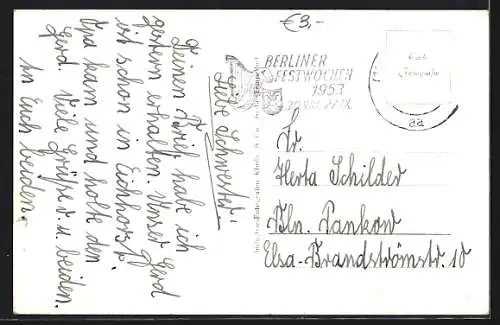 €3,-
Liebe Schwester!
Deinen Brief habe ich
gestern erhalten. Unser Gerd
ist schon in Eichhorst.
Opa kam und holte den
Gerd. Viele Grüße v. u. beiden.
An Euch beiden.
BERLINER
FESTWOCHEN
1953
Echte
Fotografie
aa
Fr.
Herta Schilder
Bln. Pankow
Elsa-Brandströmstr. 10